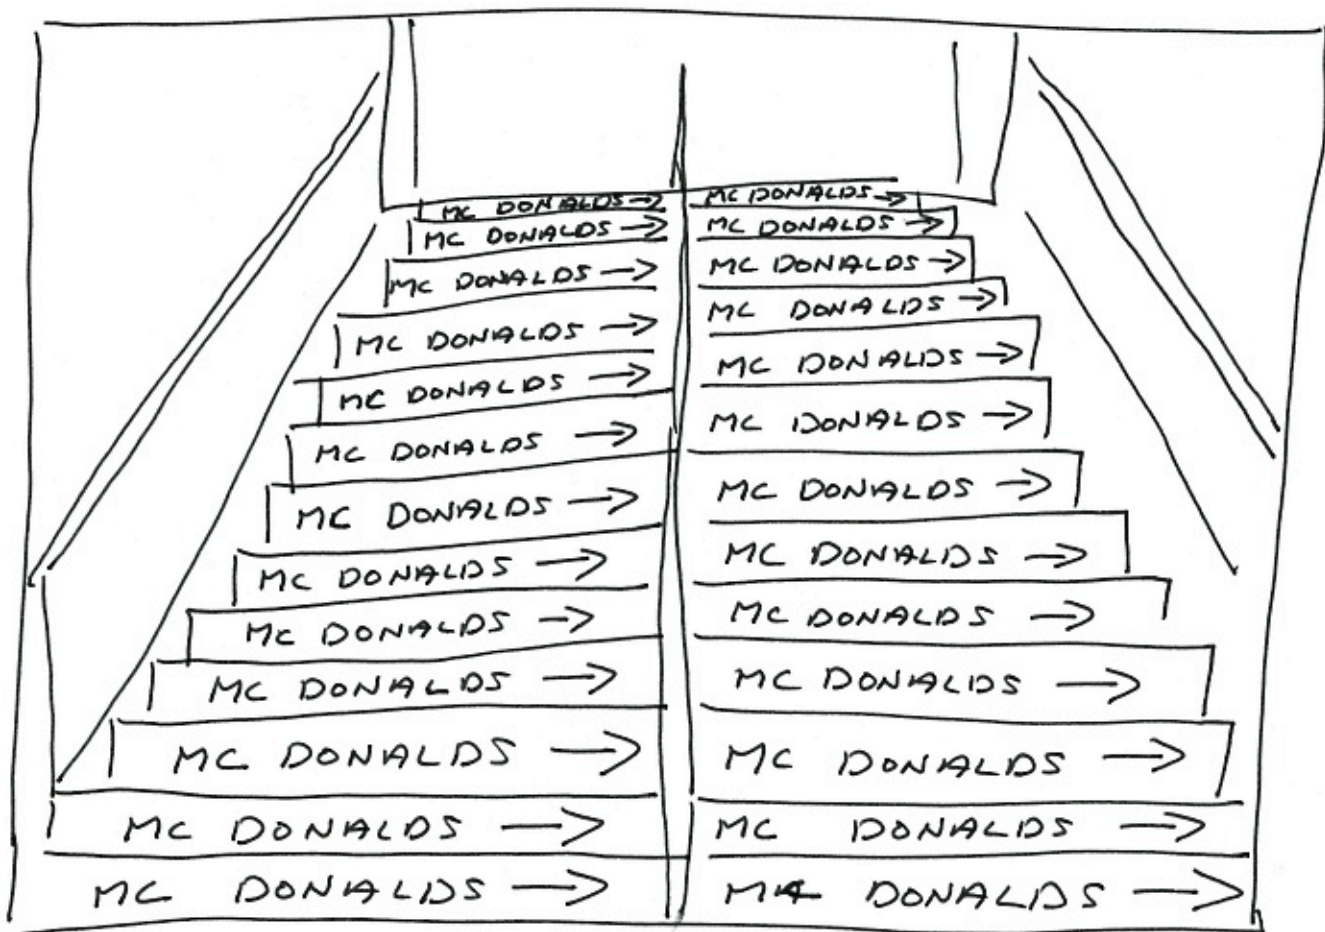 MC DONALDS → MC DONALDS →
MC DONALDS → MC DONALDS →
MC DONALDS → MC DONALDS →
MC DONALDS → MC DONALDS →
MC DONALDS → MC DONALDS →
MC DONALDS → MC DONALDS →
MC DONALDS → MC DONALDS →
MC DONALDS → MC DONALDS →
MC DONALDS → MC DONALDS →
MC DONALDS → MC DONALDS →
MC DONALDS → MC DONALDS →
MC DONALDS → MC DONALDS →
MC DONALDS → MC DONALDS →